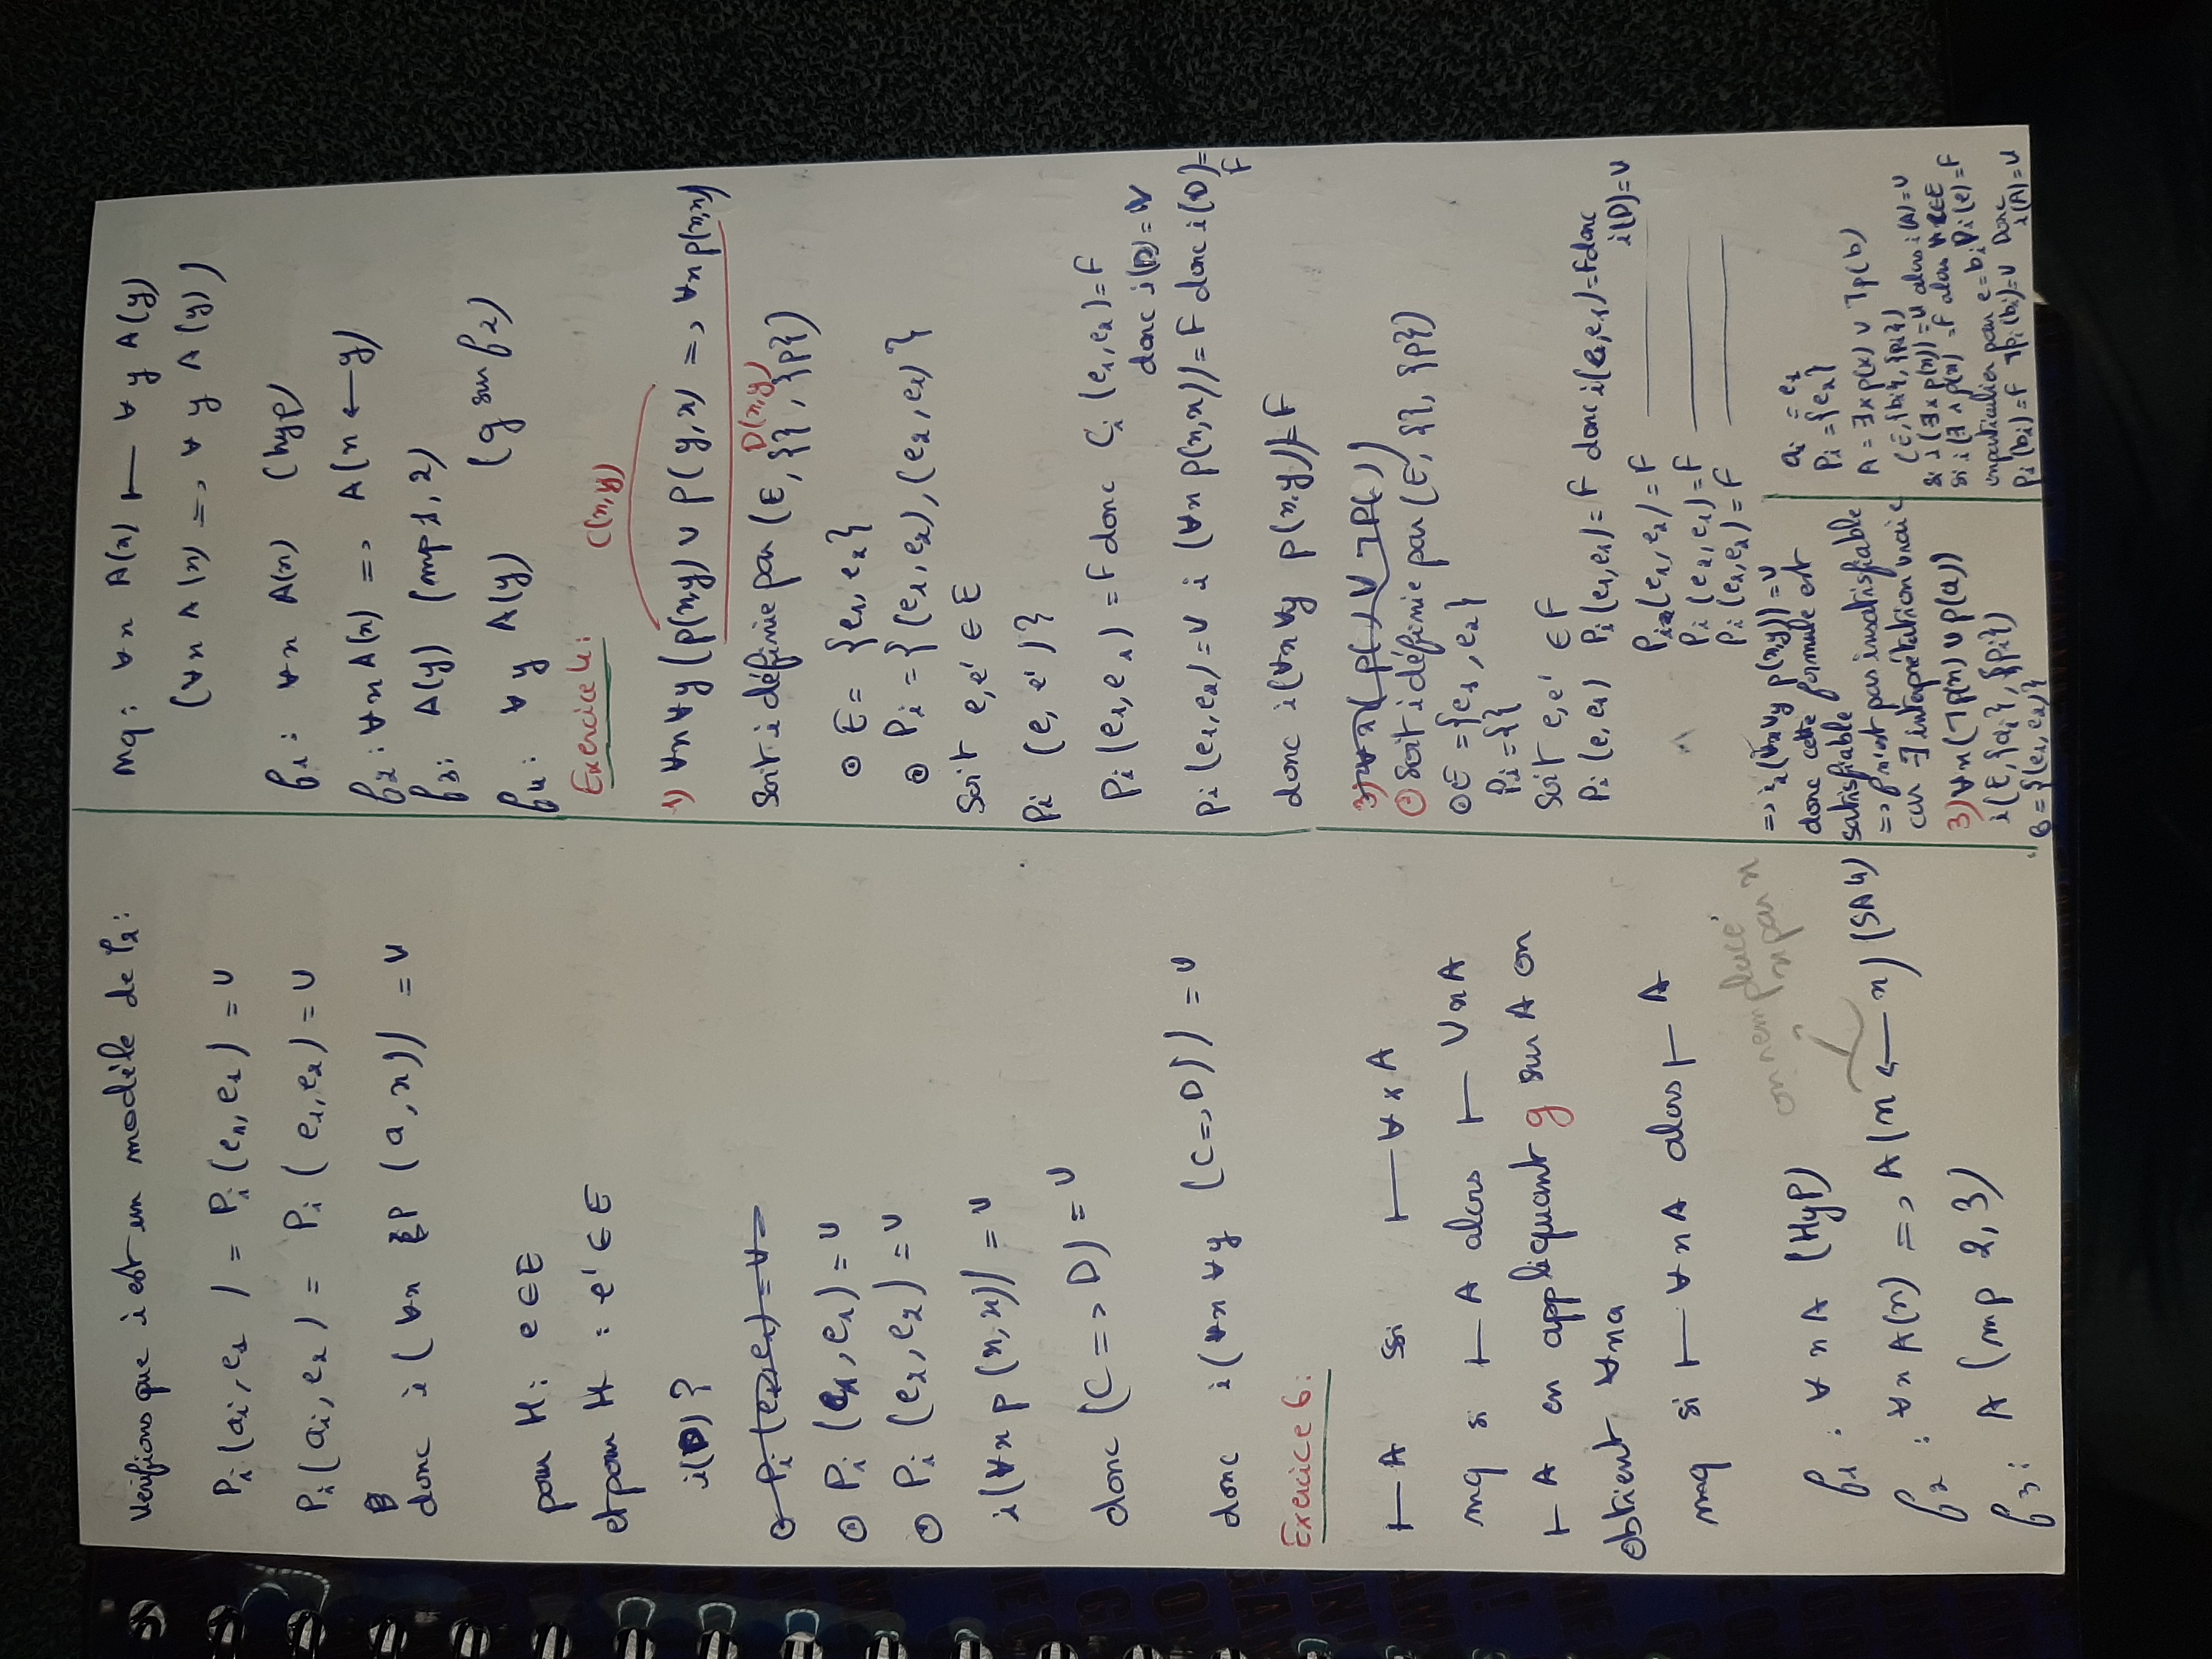 Verifions que i est un modèle de Γ2:
Pi (ai, e1) = Pi (e1, e1) = V
Pi (ai, e2) = Pi (e1, e2) = V
donc i (∀x P (a, x)) = V
pour H : e ∈ E
et pour H : e' ∈ E
i(D) ?
⊙ Pi (e1, e1) = V
⊙ Pi (e2, e2) = V
i (∀x p (x, x)) = V
donc (C => D) = V
donc i (∀x ∀y (C => D)) = V
Exercice 6:
⊢ A ssi ⊢ ∀x A
mq si ⊢ A alors ⊢ ∀x A
⊢ A en appliquant g sur A on
obtient ∀xa
mq si ⊢ ∀x A alors ⊢ A
on remplace
x par x
f1 : ∀ x A (HyP)
f2 : ∀x A(x) => A(x ← x) (SA4)
f3 : A (mp 2, 3)
Mq : ∀x A(x) ⊢ ∀ y A(y)
(∀x A(x) => ∀ y A(y))
f1 : ∀x A(x) (hyp)
f2 : ∀x A(x) => A(x ← y)
f3 : A(y) (mp 1, 2)
f4 : ∀ y A(y) (g sur f2)
Exercice 4:
C(x,y)
1) ∀x ∀y (p(x,y) ∨ p(y,x) => ∀x p(x,x))
D(x,y)
Soit i définie par (E, {}, {p})
⊙ E = {e1, e2}
⊙ Pi = {(e1, e2), (e2, e1)}
Soit e, e' ∈ E
Pi (e, e') ?
Pi (e1, e1) = F donc Ci (e1, e2) = F
donc i(D) = V
Pi (e1, e2) = V i (∀x p(x,x)) = F donc i(D) =
F
donc i (∀x ∀y p(x,y)) = F
3) ∀x( p( ) ∨ ¬p( ))
⊙ Soit i définie par (E, {}, {p})
⊙ E = {e1, e2}
Pi = {}
Soit e, e' ∈ F
Pi (e, e1) Pi (e1, e1) = F donc i(e1, e1) = F donc
i(D) = V
Pi (e1, e2) = F
Pi (e2, e1) = F
Pi (e2, e2) = F
=> i2 (∀x ∀y p(x,y)) = V
donc cette formule est
satisfiable
=> f n'est pas insatisfiable
car ∃ interprétation vraie
3) ∀x (¬p(x) ∨ p(a))
i (E, {ai}, {Pi})
E = {(e1, e2)}
ai = e1
Pi = {e2}
A = ∃x p(x) ∨ ¬p(b)
(E, {bi}, {pi})
si i (∃x p(x)) = V alors i(A) = V
si i (∃x p(x) = F alors ∀ e∈E
en particulier pour e = bi Pi(e) = F
Pi (bi) = F ¬pi (bi) = V Donc
i(A) = V